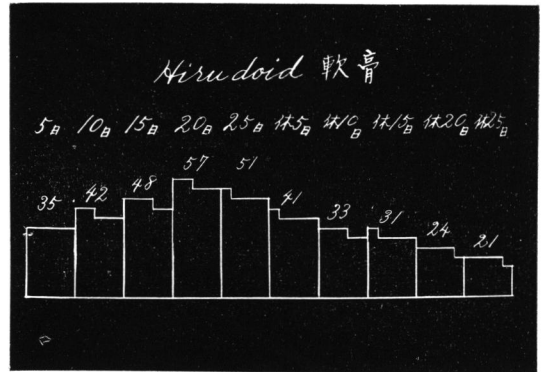 Hirudoid 軟膏
5日 10日 15日 20日 25日 休5日 休10日 休15日 休20日 休25日
35 42 48 57 51 41 33 31 24 21